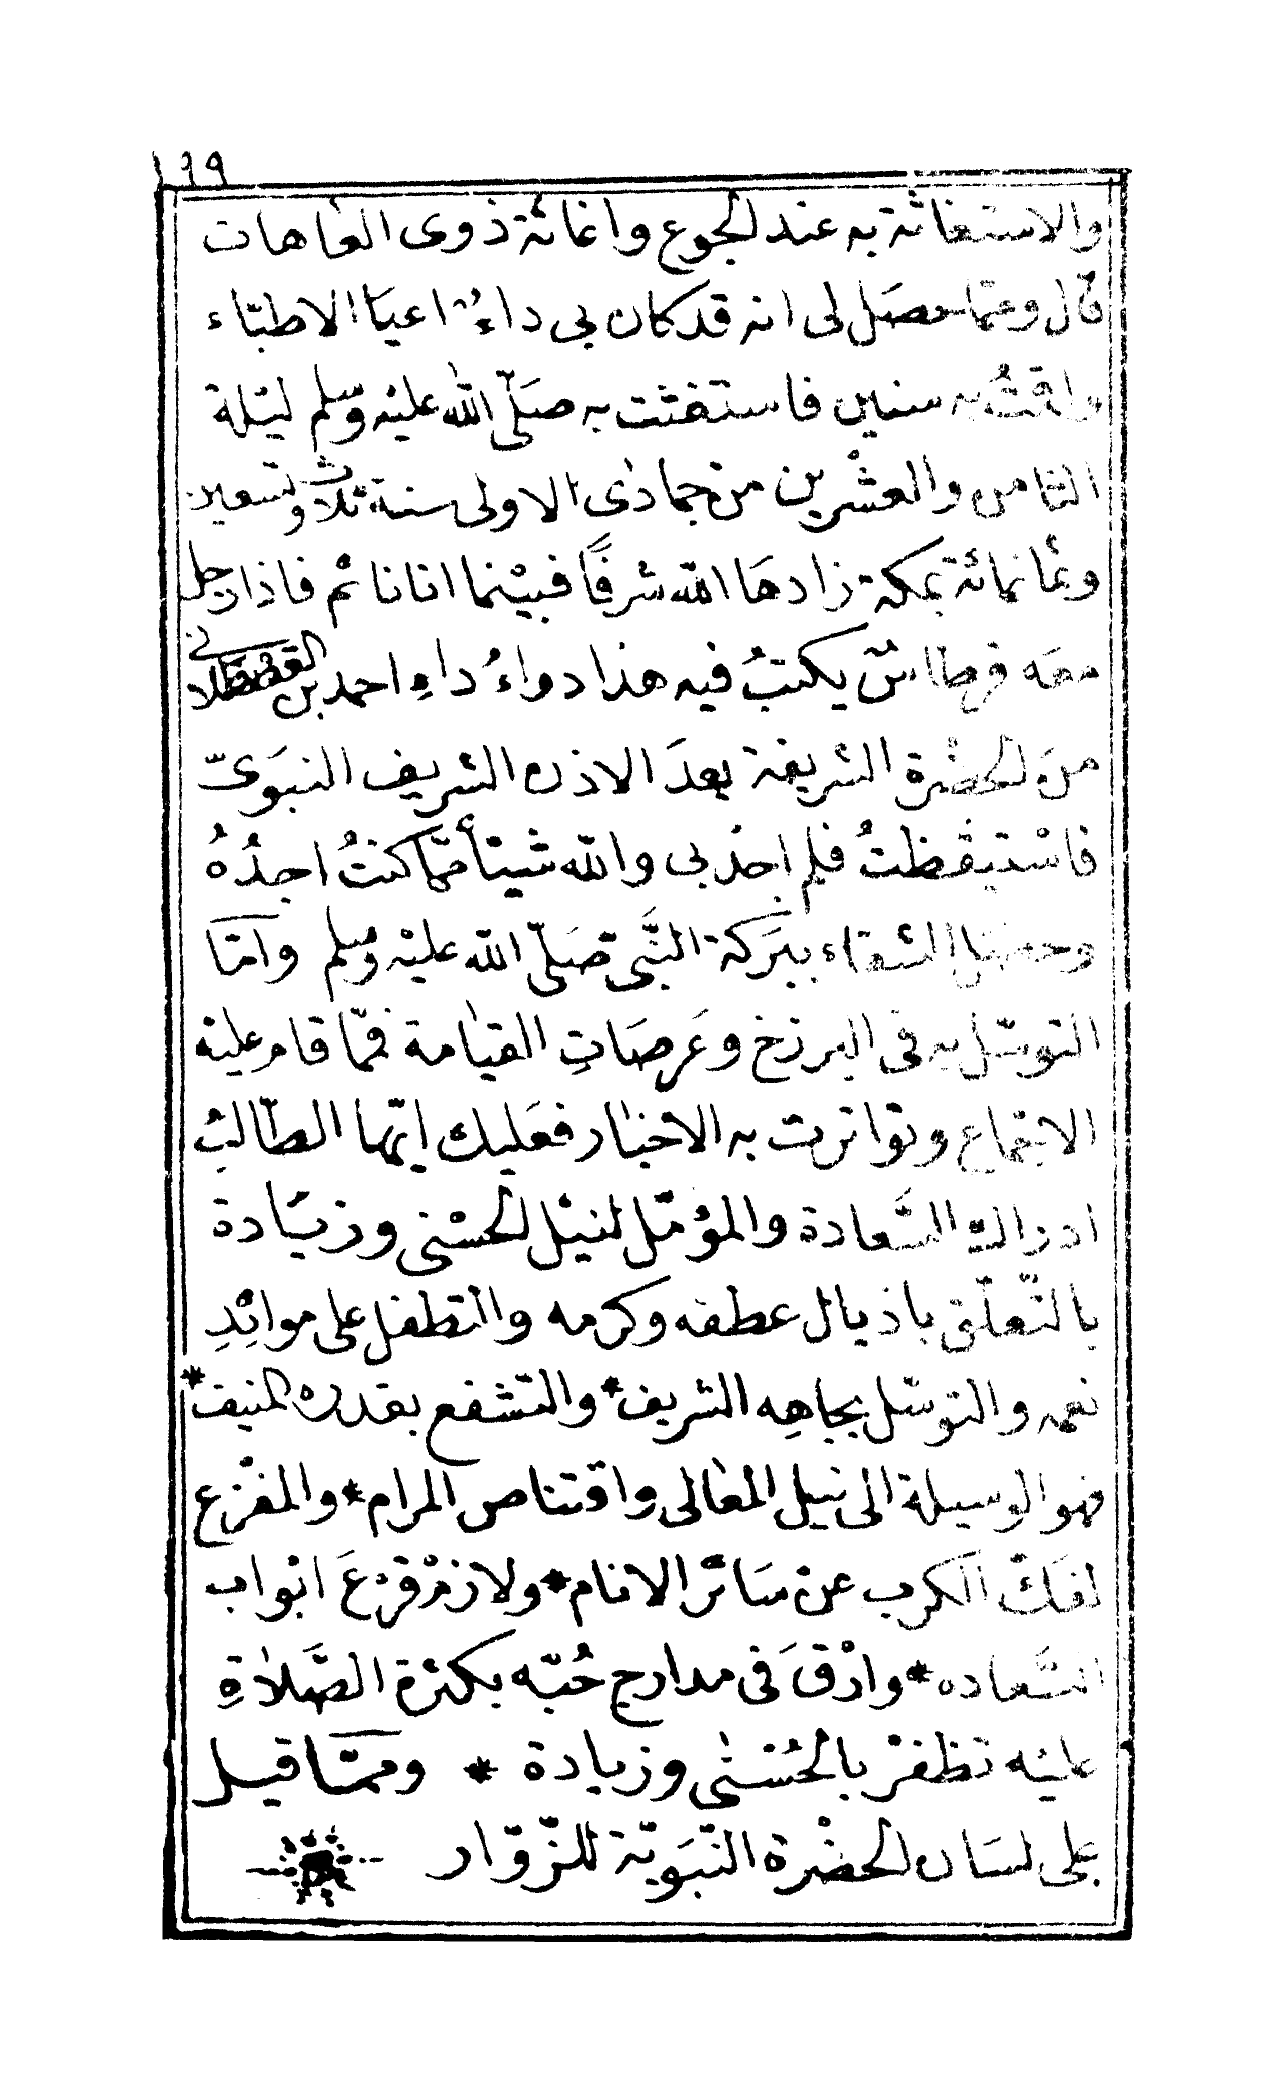 ١٩٩
والاستغاثة به عند الجوع واغاثة ذوى العاهات
قال ومما حصَل لى انه قد كان بى داءٌ اعيَا الاطبّاء
واقمتُ به سنين فاستغثت به صَلّى الله عليْه وسَلم ليْلة
الثامن والعشْرين من جمادى الاولى سنة ثلاث وتسعين
وثمانمائة بمكة زادهَا الله شرفًا فبيْنما انا نائم فاذا رجل
معَه قرطاسٌ يكتبُ فيه هذا دواءُ داءِ احمد بن القسطلانى
منَ الحضْرة الشريفة بعدَ الاذن الشريف النبوَىّ
فاسْتيقظتُ فلم اجدْ بى والله شيئاً ممّا كنتُ اجدُهُ
وحصَل الشفاء ببَركة النَّبى صَلّى الله عليْه وسَلم وامّا
التوسّل به فى البرزخ وعَرصَاتِ القيامة فممّا قام عليْه
الاجماع وتواترت به الاخبار فعَليك ايّها الطّالبُ
ادراك السَّعادة والمؤمّل لنيْل الحسْنى وزيَادة
بالتّعلّق باذيال عطفه وكرمه والتطفل على موائدِ
نعمه والتوسّل بجاهِه الشريف * والتشفع بقدره المنيف *
فهو الوسيلة الى نيل المعالى واقتناص المرام * والمفْزع
لفكّ الكرب عن سَائر الانام * ولازمْ قرْعَ ابْواب
السَّعاده * وارْقَ فى مدارج حُبّه بكثرة الصَّلاةِ
عليْه تظفرْ بالحُسْنى وزيادة * وممّا قيل
على لسَان الحضْرة النّبَويّة للزّوّار